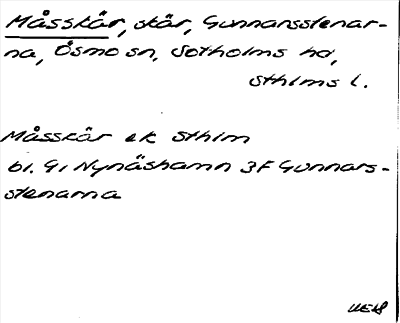 Måsskär, skär, Gunnarsstenar-
na, Ösmo sn, Sotholms hd,
Sthlms l.
Måsskär ek Sthlm
bl. 91 Nynäshamn 3F Gunnars-
stenarna